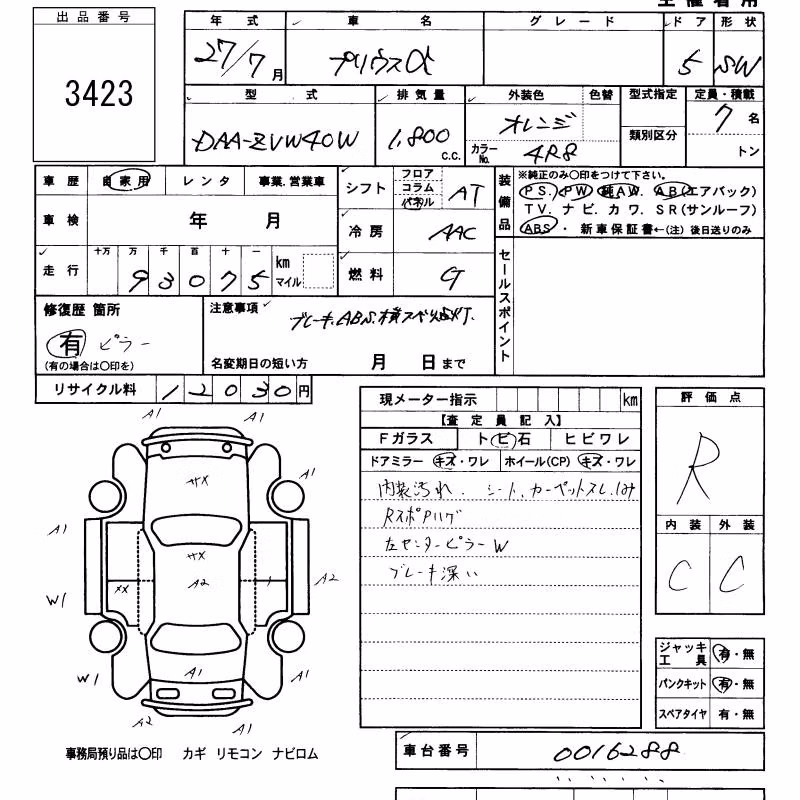 出品番号
3423
年式
27/7月
車名
プリウスα
グレード
ドア
5
形状
SW
型式
DAA-ZVW40W
排気量
1,800 C.C.
外装色
オレンジ
色替
カラーNo.
4R8
型式指定
類別区分
定員・積載
7名
トン
車歴
自家用
レンタ
事業.営業車
シフト
フロア
コラム
パネル
AT
装備品
※純正のみ○印をつけて下さい。
P S. PW 純AW. AB(エアバック)
TV. ナビ. カワ. SR(サンルーフ)
ABS・ 新車保証書←(注) 後日送りのみ
車検
年 月
冷房
AAC
走行
十万 万 千 百 十 一
93075
km
マイル
燃料
G
セールスポイント
修復歴 箇所
有 ピラー
(有の場合は○印を)
注意事項
ブレーキ、ABS、横スベリ点灯.
名変期日の短い方 月 日まで
リサイクル料
12030円
現メーター指示 km
【査定員記入】
Fガラス トビ石 ヒビワレ
ドアミラー キズ・ワレ ホイール(CP) キズ・ワレ
内装汚れ. シート、カーペットスレ.しみ
RスポPハゲ
左センターピラーW
ブレーキ深い
評価点
R
内装 外装
C C
ジャッキ工具 有・無
パンクキット 有・無
スペアタイヤ 有・無
A1 A1
A1 A1
A1 A2
W1
W1 A1
A2 A1
XX
A2
A1
事務局預り品は○印 カギ リモコン ナビロム
車台番号
0016288